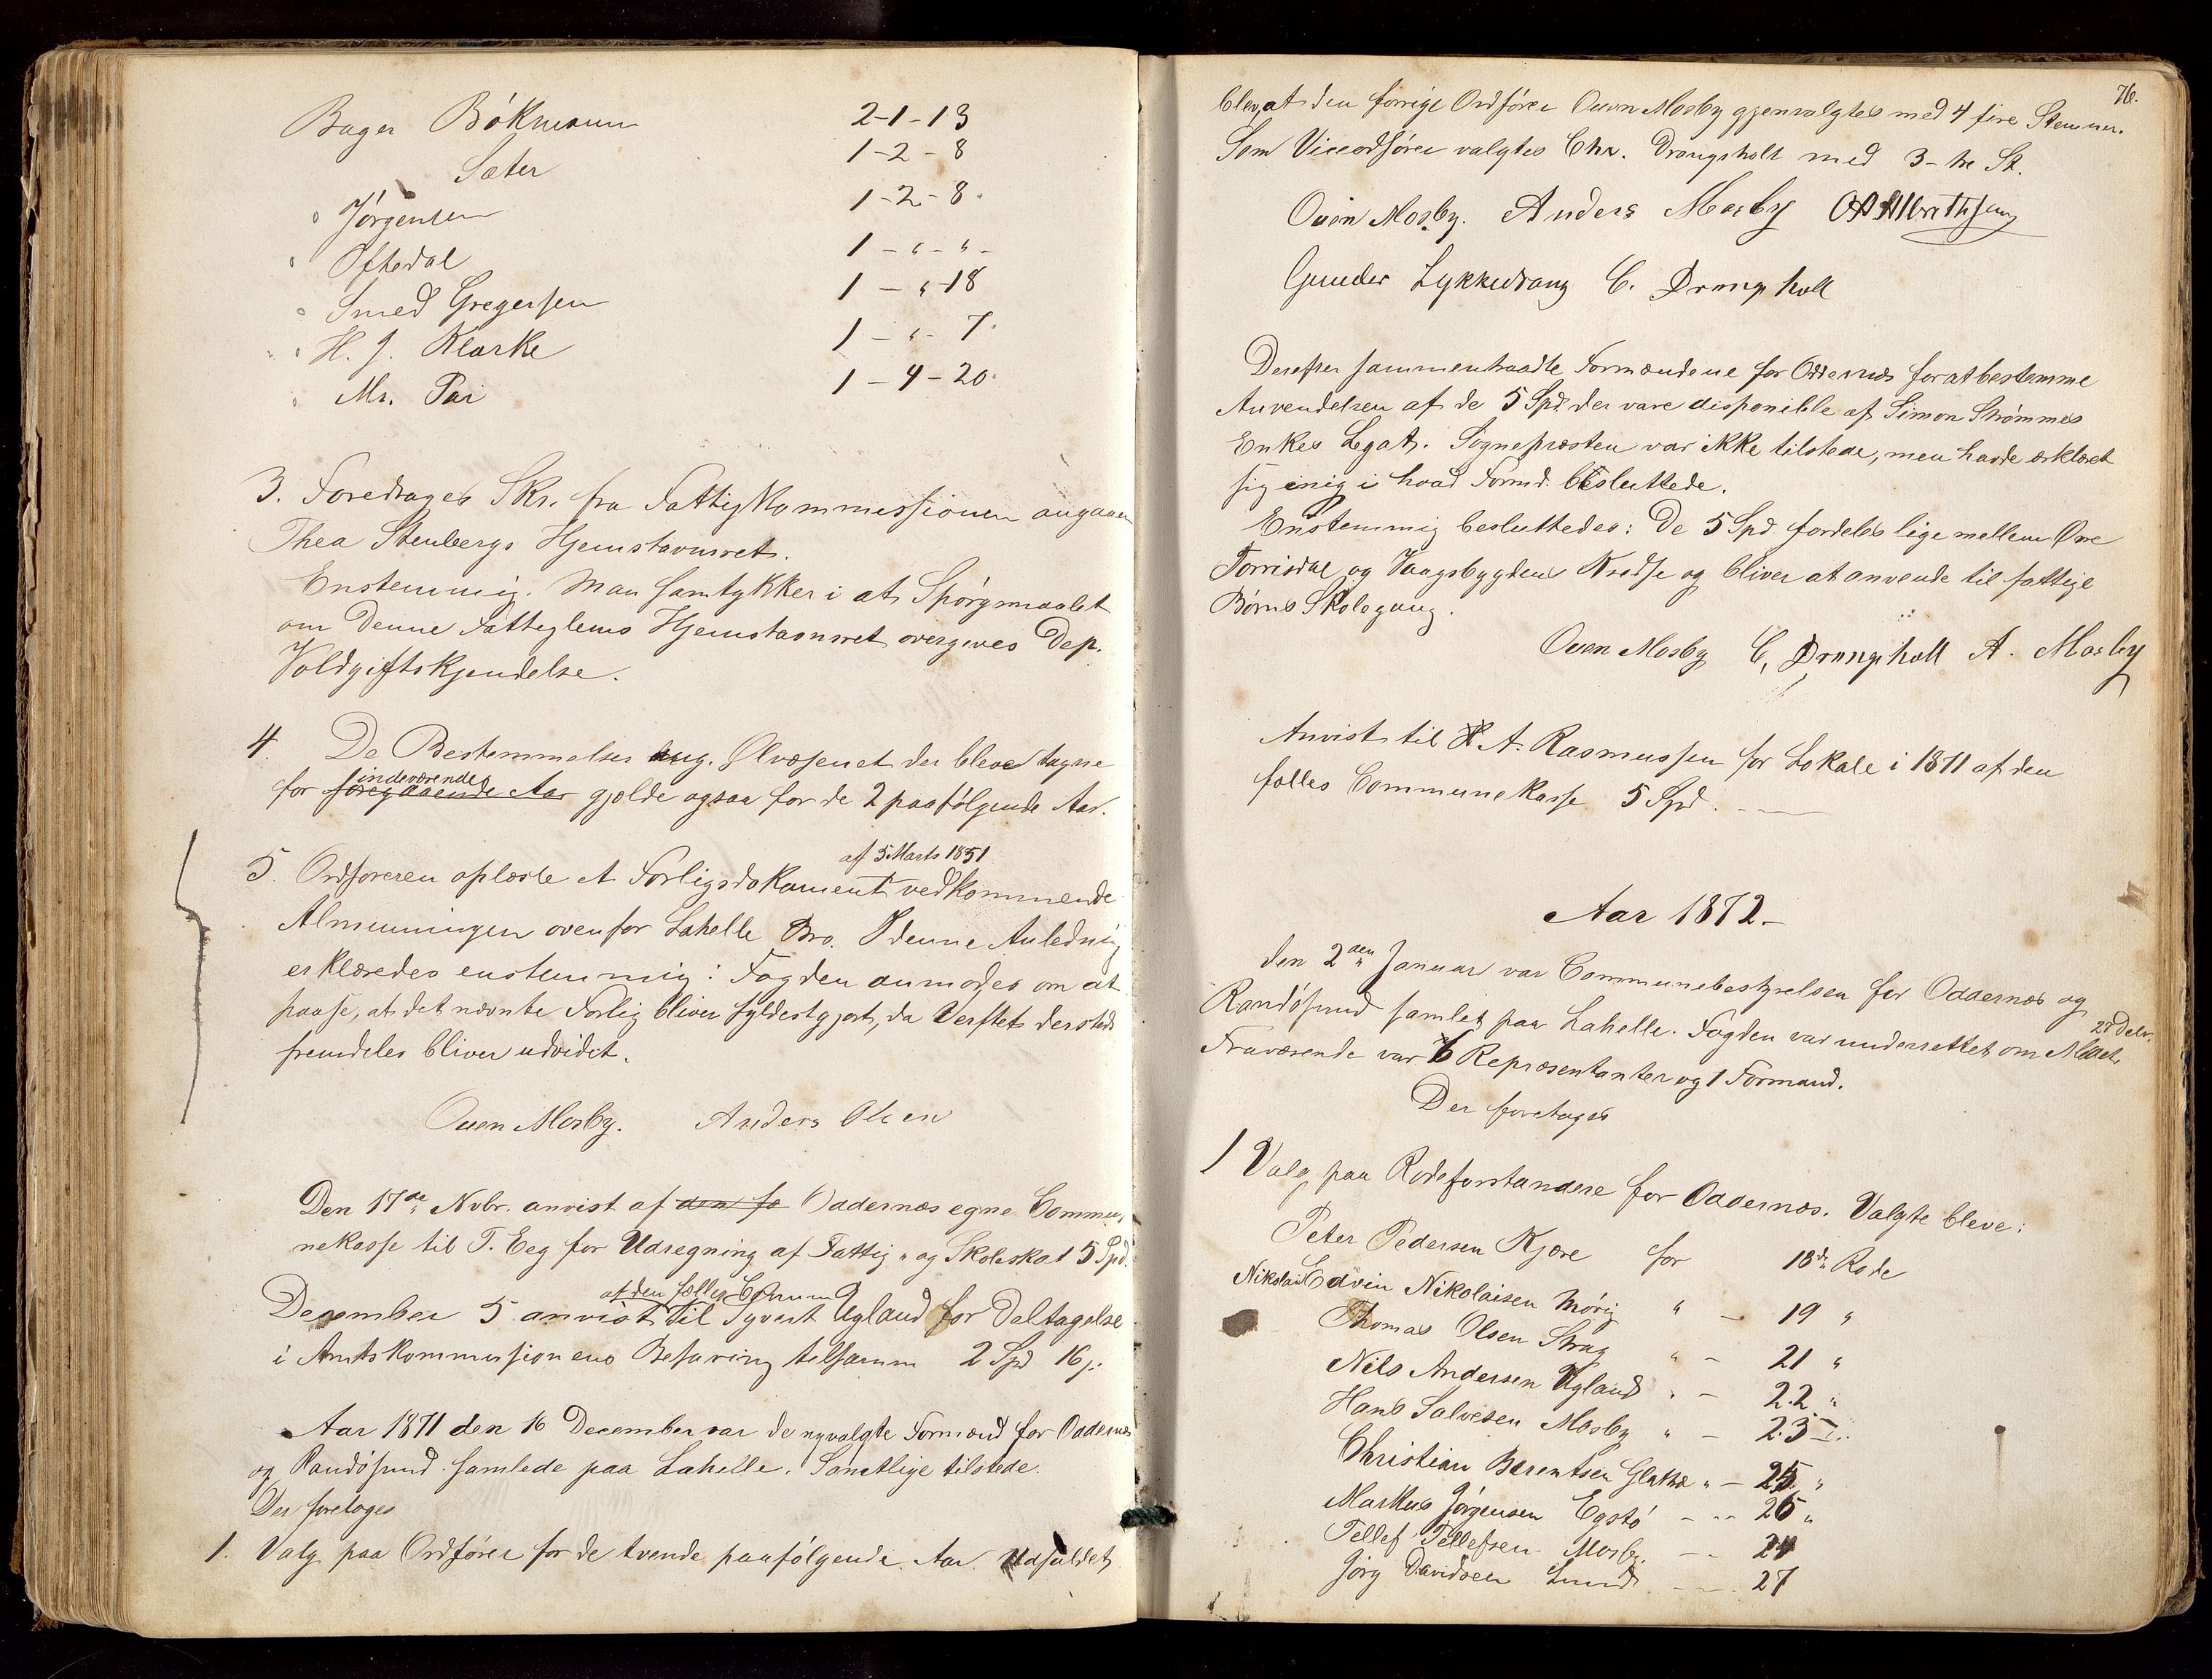 Bager Bökmann 2-1-13
Sæter 1-2-8
" Jörgensen 1-2-8.
" Oftedal 1-"-"-
" Smed Gregersen 1-"-18
" H. J. Klarke 1-"-7.
" Mr. Pai 1-4-20.
3. Foredroges Skr. fra Fattigkommissionen angaaen
Thea Stenbergs Hjemstavnsret.
Enstemmig. Man samtykker i at Spörgsmaalet
om denne Fattiglems Hjemstavnsret overgives Dep.
Voldgiftskjendelse.
4. De Bestemmelser ang. Ölvæsenet der bleve tagne
indeværende
for foregaaende Aar gjælde ogsaa for de 2 paafölgende Aar.
af 5 Marts 1851
5. Ordföreren oplæste et Forligsdokument vedkommende
Almenningen ovenfor Lahelle Bro. I denne Anledning
erklæredes enstemmig: Fogden anmodes om at
paase, at det nævnte Forlig bliver fyldestgjort, da Verftet dersteds
fremdeles bliver udvidet.
Ouen Mosby. Anders Olsen
Den 17de Nvbr. anvist af den fæ Oddernæs egne Commu-
nekasse til T. Eeg for Udregning af Fattig- og Skoleskat 5 Spd.
af den fælles Comm
December 5 anvist til Syvert Ugland for Deltagelse
i Amtskommissionens Befaring tilsamm 2 Spd 16 s.
Aar 1871 den 16 December var de nyvalgte Formænd for Oddernæs
og Randösund samlede paa Lahelle. Samtlige tilstede.
Der foretoges
1. Valg paa Ordförer for de tvende paafölgende Aar. Udfaldet
76.
blev, at den forrige Ordförer Ouen Mosby gjenvalgtes med 4 fire Stemmer.
Som Viceordförer valgtes Chr. Drangsholt med 3- tre St.
Ouen Mosby. Anders Mosby
Gunder Lykkedrang C. Drangsholt
Derefter sammentraadte Formændene for Oddernæs for at bestemme
Anvendelsen af de 5 Spd. der vare disponible af Simon Strömmes
Enkes Legat. Sognepræsten var ikke tilstede, men havde erklæret
sig enig i hvad Formd. besluttede.
Enstemmig besluttedes: De 5 Spd. fordeles lige mellem Ovre
Torrisdal og Vaagsbygdens Kredse og bliver at anvende til fattige
Börns Skolegang.
Ouen Mosby C. Drangsholt A. Mosby
Anvist til A. Rasmussen for Lokale i 1871 af den
fælles Communekasse 5 Spd.
Aar 1872-
den 2den Januar var Communebestyrelsen for Oddernæs og
Randösund samlet paa Lahelle. Fogden var underrettet om Mödet
Fraværende var 6 Repræsentanter og 1 Formand.
Der foretoges
1 Valg paa Rodeforstandere for Oddernæs. Valgte bleve:
Peter Pedersen Kjære for 18de Rode
Nikolai Edvin Nikolaisen Mörig " - 19 "
Thomas Olsen Stray " - 21 "
Nils Andersen Ugland " - 22 "
Hans Salvesen Mosby " - 23
Christian Berentsen " - 25 "
Markus Jörgensen Egstö - - 26 "
Tellef Tellefsen Mosby. - - 24
Jörg Davidsen Lund - - 27